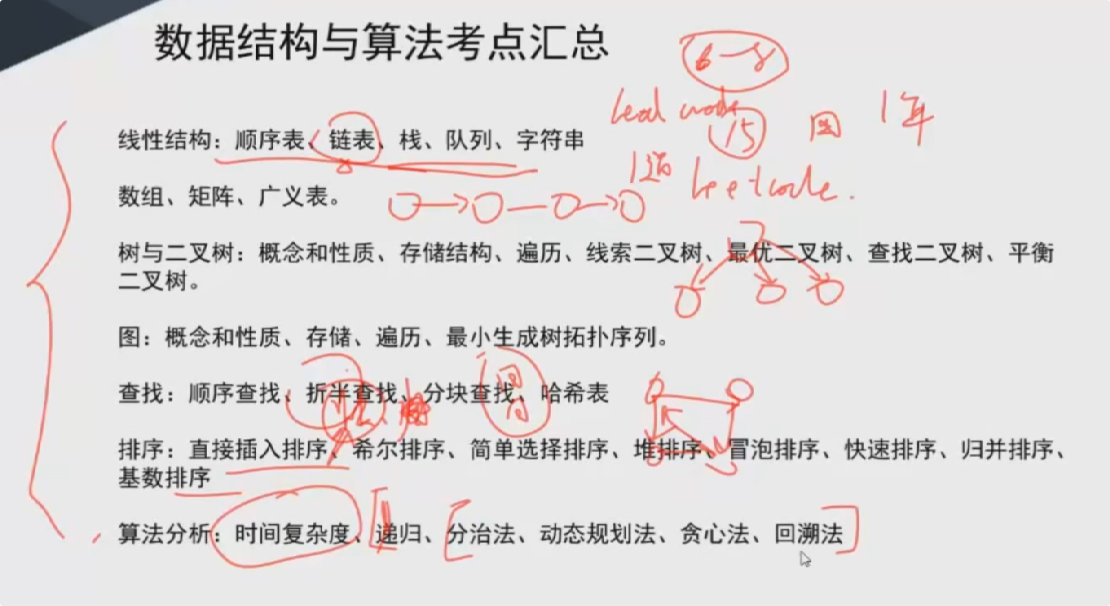 数据结构与算法考点汇总
6-8
线性结构：顺序表、链表、栈、队列、字符串
15
1年
leetcode.
数组、矩阵、广义表。
树与二叉树：概念和性质、存储结构、遍历、线索二叉树、最优二叉树、查找二叉树、平衡
二叉树。
图：概念和性质、存储、遍历、最小生成树拓扑序列。
查找：顺序查找、折半查找、分块查找、哈希表
排序：直接插入排序、希尔排序、简单选择排序、堆排序、冒泡排序、快速排序、归并排序、
基数排序
算法分析：时间复杂度、递归、分治法、动态规划法、贪心法、回溯法